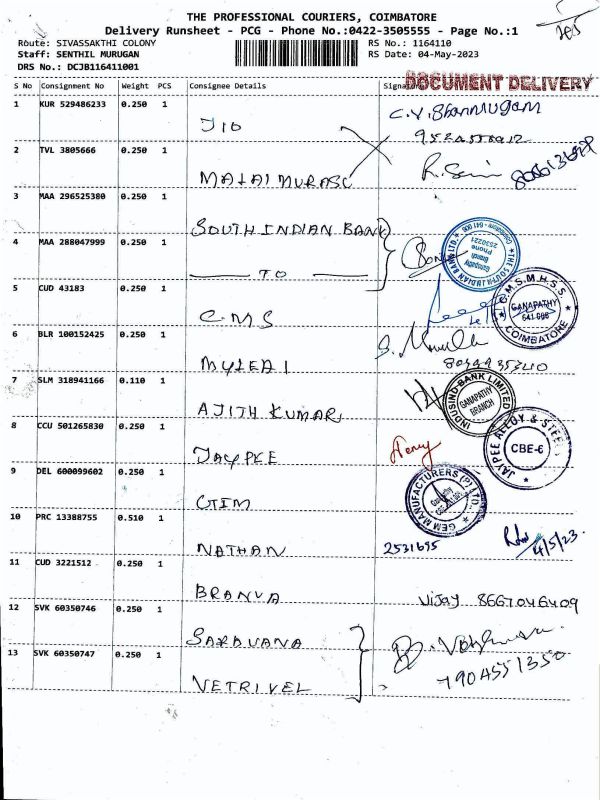 THE PROFESSIONAL COURIERS, COIMBATORE
Delivery Runsheet - PCG - Phone No.:0422-3505555 - Page No.:1
Route: SIVASSAKTHI COLONY RS No.: 1164110
Staff: SENTHIL MURUGAN RS Date: 04-May-2023
DRS No.: DCJB116411001
DOCUMENT DELIVERY
S No Consignment No Weight PCS Consignee Details
1 KUR 529486233 0.250 1
JIO
C.V.Shanmugam
2 TVL 3805666 0.250 1
MALAI MURASU
3 MAA 296525380 0.250 1
SOUTH INDIAN BANK
4 MAA 288047999 0.250 1
TO
THE SOUTH INDIAN BANK LTD.
Ganapathy Branch
Phone 2530221
Coimbatore - 641 006
5 CUD 43183 0.250 1
C.M.S
C.M.S.M.H.S.S.
GANAPATHY
641 006
COIMBATORE
6 BLR 100152425 0.250 1
MYLEAI
7 SLM 318941166 0.110 1
AJITH KUMAR
INDUSIND BANK LIMITED
GANAPATHY BRANCH
8 CCU 501265830 0.250 1
JAYPEE
JAY PEE ALLOY & STEEL
CBE-6
9 DEL 600099602 0.250 1
GEM MANUFACTURERS (P) LTD.
10 PRC 13388755 0.510 1
NATHAN
2531695
4/5/23
11 CUD 3221512 0.250 1
BRANVA
Vijay 8667046409
12 SVK 60350746 0.250 1
SARAVANA
13 SVK 60350747 0.250 1
VETRIVEL
7904551350